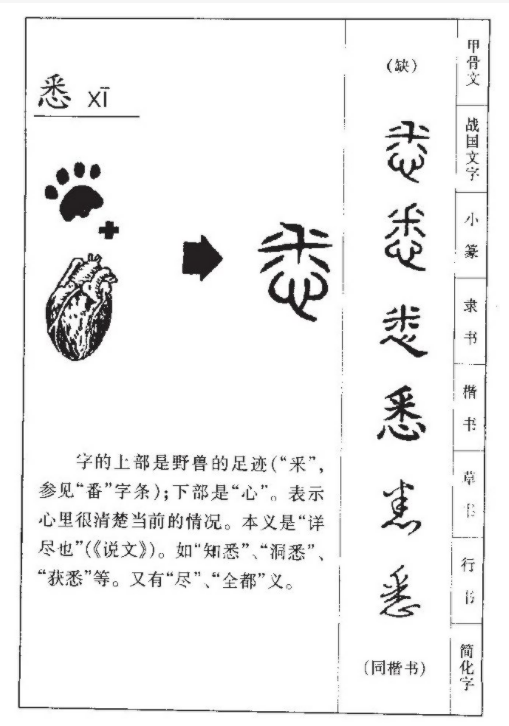 悉 xī
字的上部是野兽的足迹(“釆”,
参见“番”字条);下部是“心”。表示
心里很清楚当前的情况。本义是“详
尽也”(《说文》)。如“知悉”、“洞悉”、
“获悉”等。又有“尽”、“全都”义。
(缺)
甲骨文
悉
战国文字
悉
小篆
悉
隶书
悉
楷书
悉
草书
悉
行书
(同楷书)
简化字